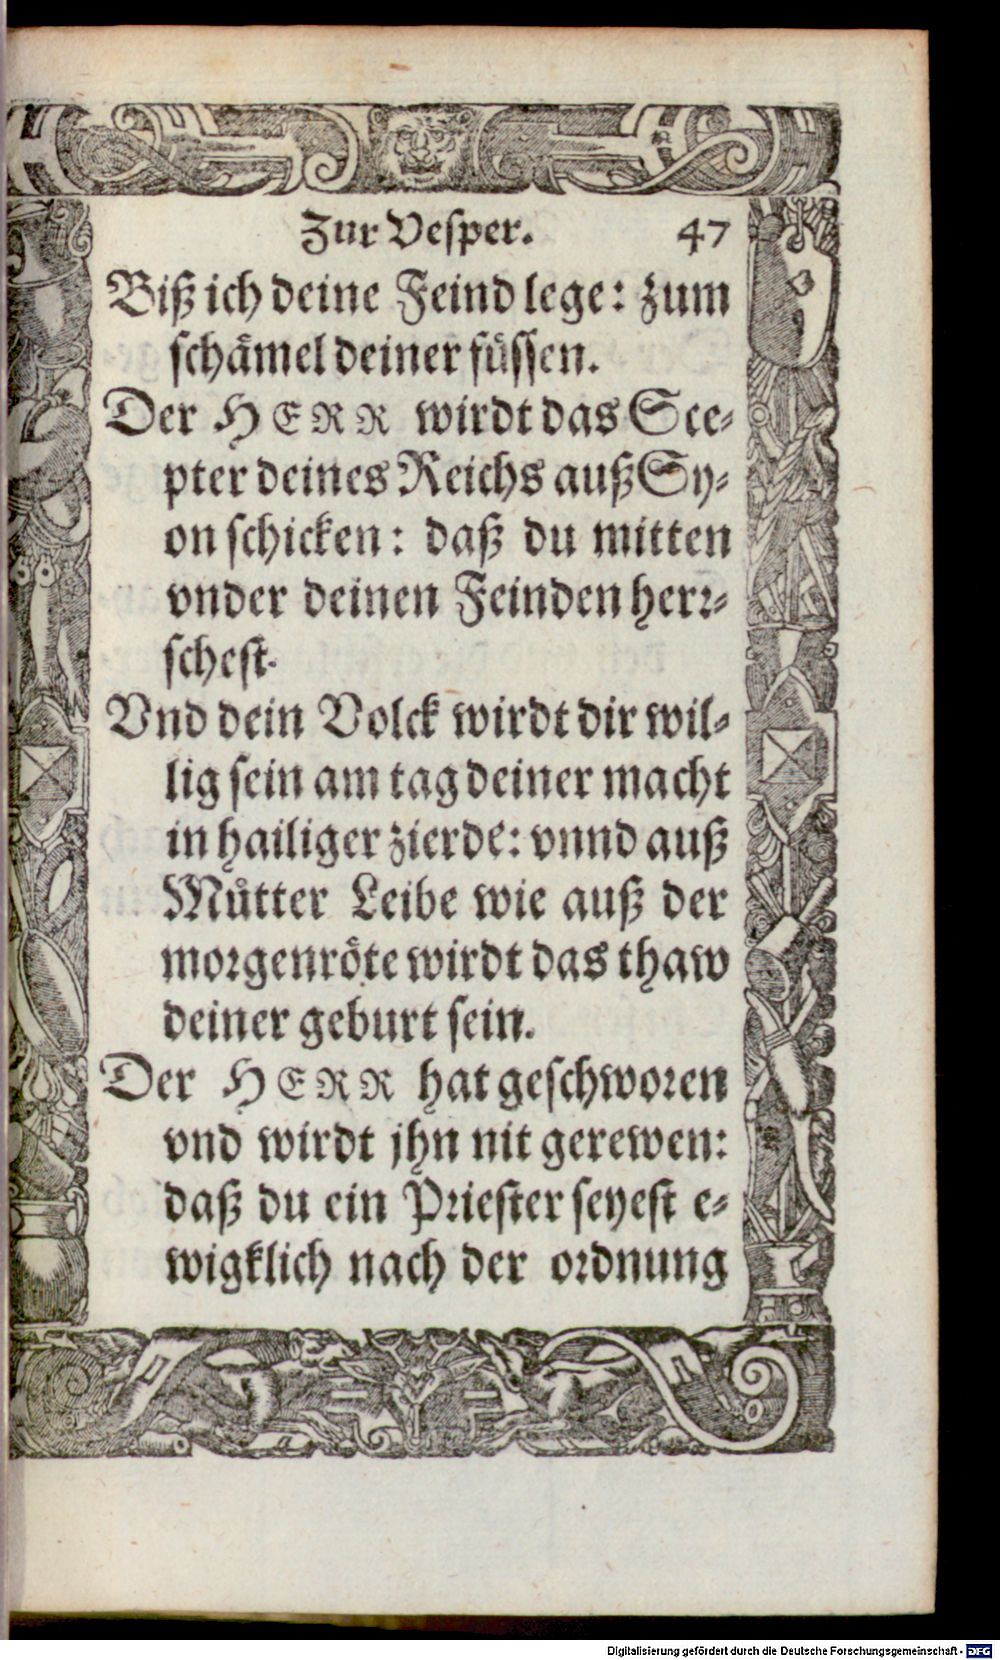 Zur Vesper. 47
Biß ich deine Feind lege: zum
schämel deiner füssen.
Der HERR wirdt das Sce-
pter deines Reichs auß Sy-
on schicken: daß du mitten
vnder deinen Feinden herr-
schest.
Vnd dein Volck wirdt dir wil-
lig sein am tag deiner macht
in hailiger zierde: vnnd auß
Můtter Leibe wie auß der
morgenröte wirdt das thaw
deiner geburt sein.
Der HERR hat geschworen
vnd wirdt jhn nit gerewen:
daß du ein Priester seyest e-
wigklich nach der ordnung
Digitalisierung gefördert durch die Deutsche Forschungsgemeinschaft - DFG